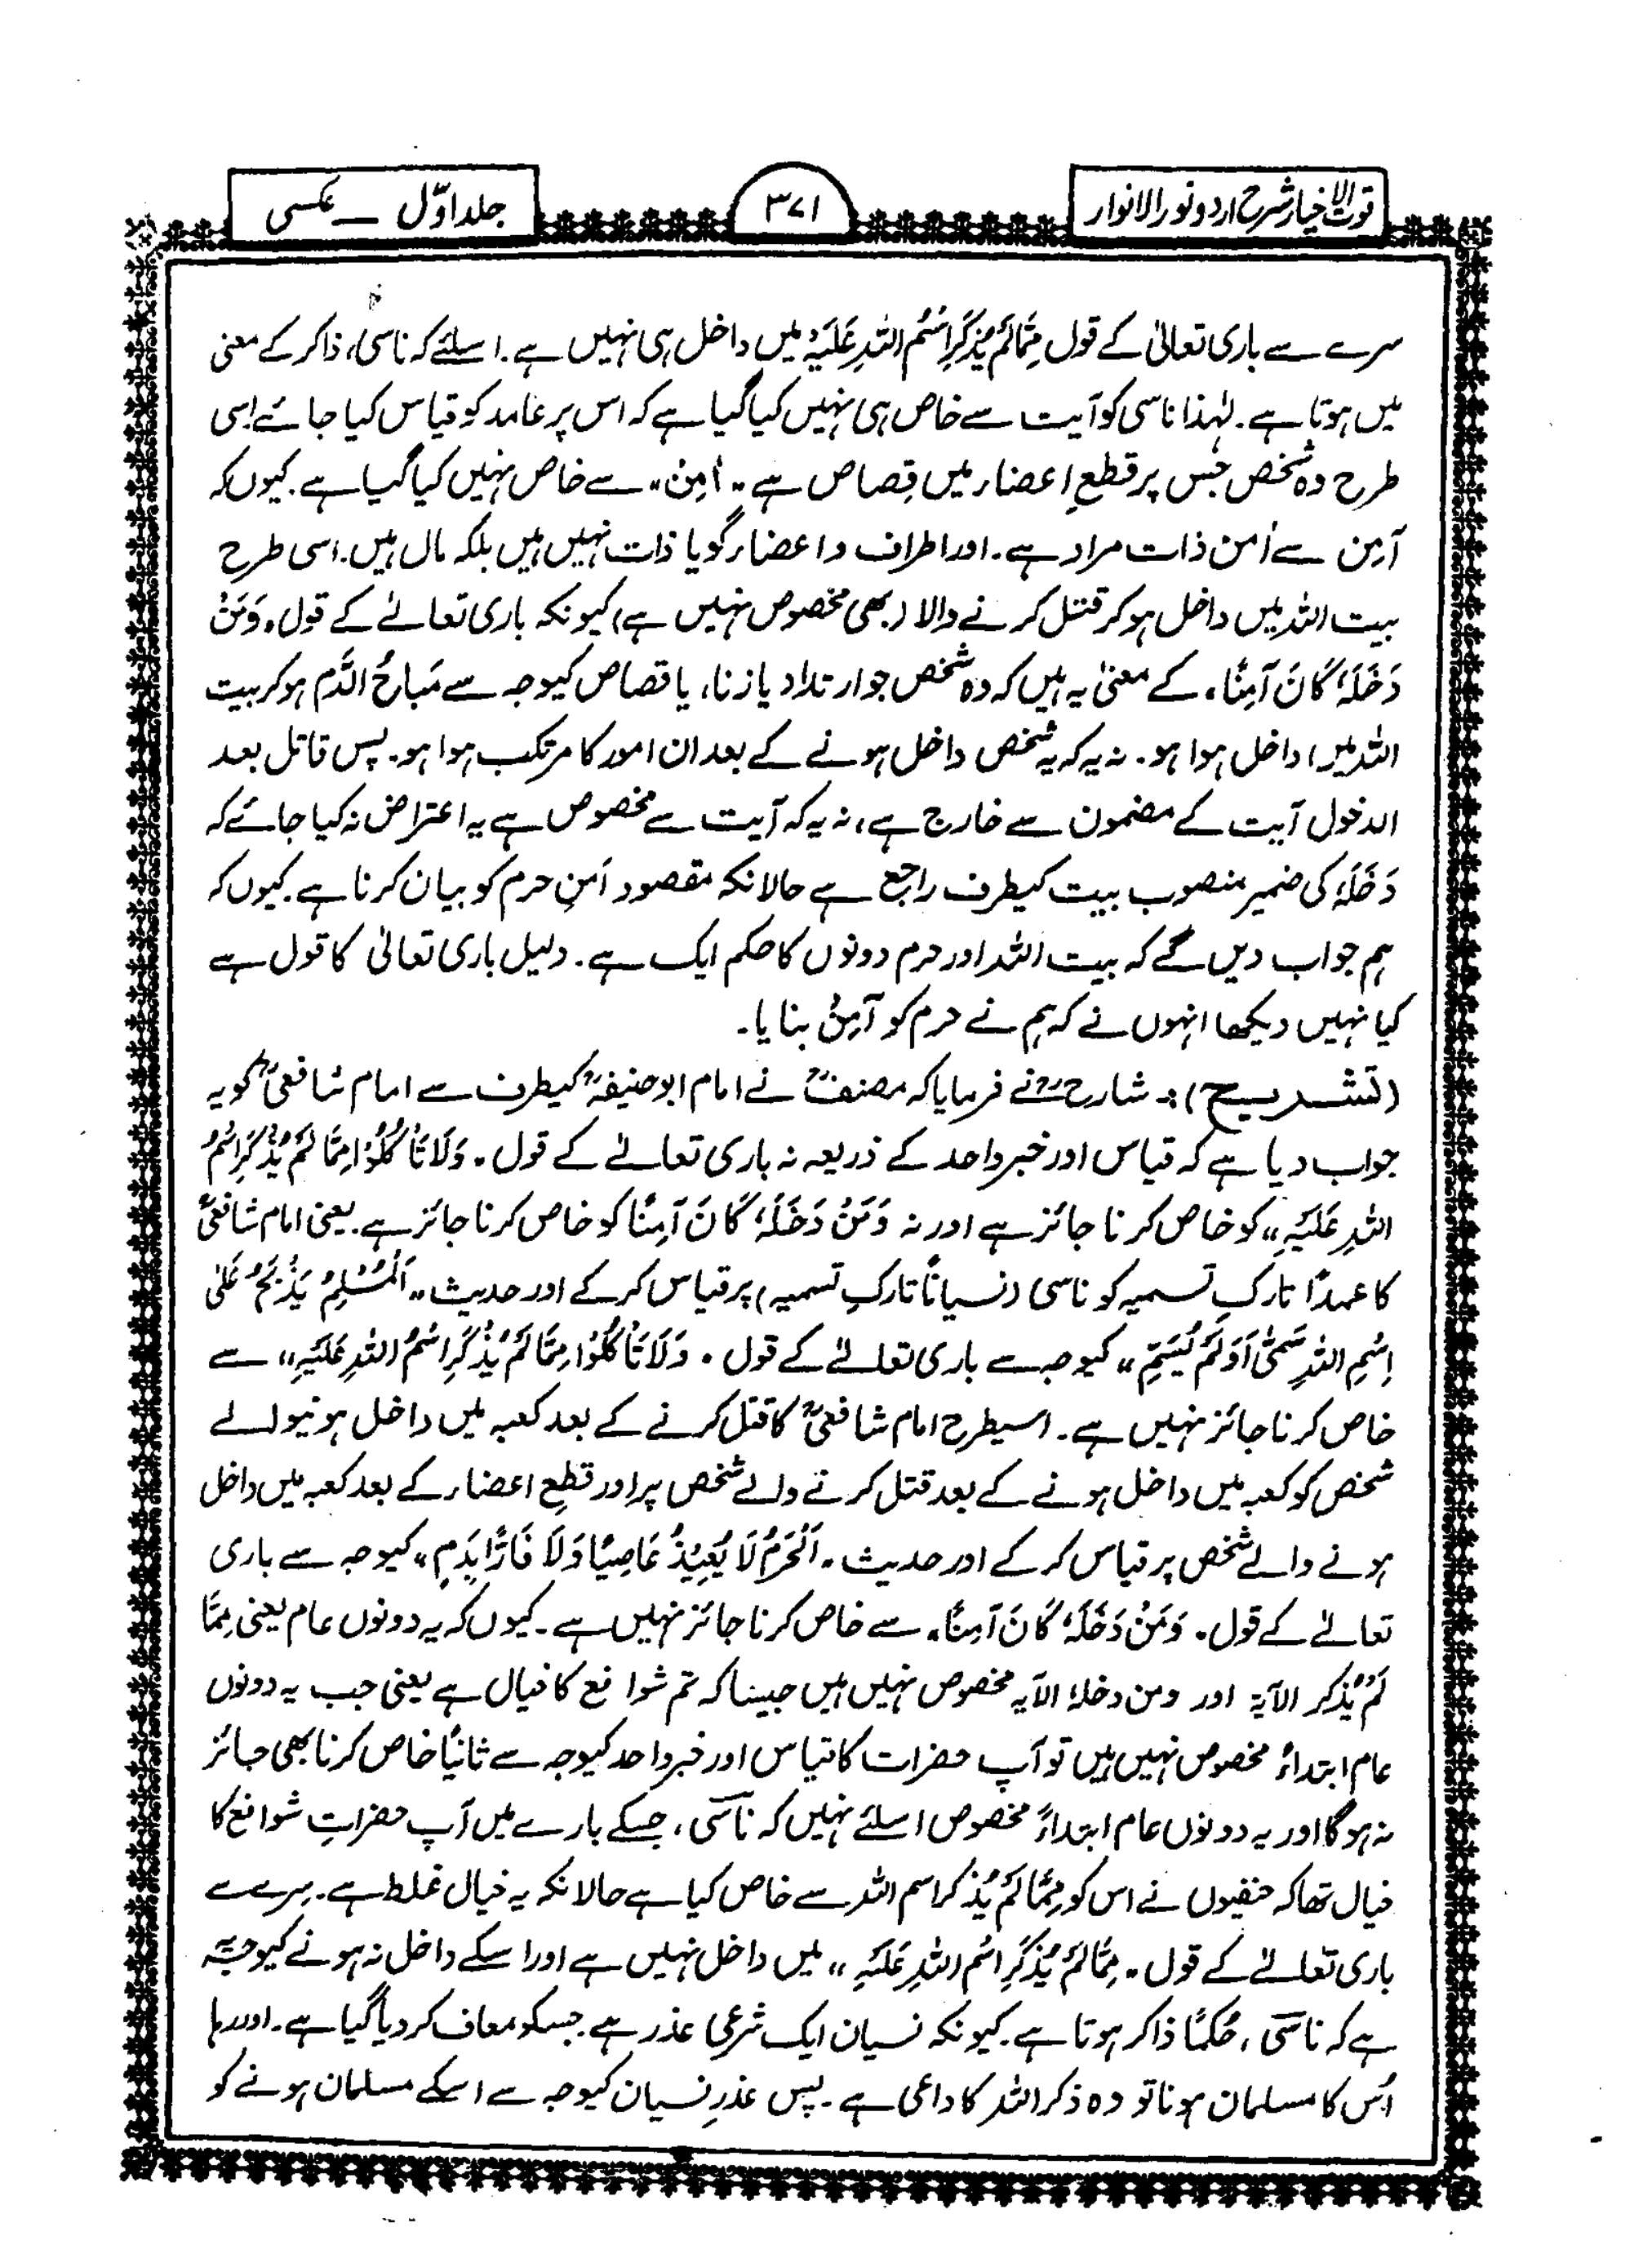 قوت الاخیار شرح اردو نور الانوار
۳۷۱
جلد اوّل — عکسی
سرے سے باری تعالیٰ کے قول مِمَّا لَمْ یُذْکَرِ اسْمُ اللّٰہِ عَلَیْہِ میں داخل ہی نہیں ہے۔ اسلئے کہ ناسی، ذاکر کے معنی
میں ہوتا ہے۔ لہٰذا ناسی کو آیت سے خاص ہی نہیں کیا گیا ہے کہ اس پر عامد کو قیاس کیا جائے اسی
طرح وہ شخص جس پر قطعِ اعضار میں قِصاص ہے „اٰمِن„ سے خاص نہیں کیا گیا ہے۔ کیوں کہ
آمِن سے اٰمن ذات مراد ہے۔ اور اطراف و اعضار گویا ذات نہیں ہیں بلکہ مال ہیں۔ اسی طرح
بیت اللہ میں داخل ہو کر قتل کرنے والا (بھی مخصوص نہیں ہے) کیونکہ باری تعالےٰ کے قول „وَمَنْ
دَخَلَہٗ کَانَ آمِنًا„ کے معنیٰ یہ ہیں کہ وہ شخص جو ارتداد یا زنا، یا قصاص کیوجہ سے مُباحُ الدَّم ہو کر بیت
اللہ میں داخل ہوا ہو۔ نہ یہ کہ یہ شخص داخل ہونے کے بعد ان امور کا مرتکب ہوا ہو۔ پس قاتل بعد
الدخول آیت کے مضمون سے خارج ہے، نہ یہ کہ آیت سے مخصوص ہے یہ اعتراض نہ کیا جائے کہ
دَخَلَہٗ کی ضمیر منصوب بیت کیطرف راجع ہے حالانکہ مقصود اَمنِ حرم کو بیان کرنا ہے۔ کیوں کہ
ہم جواب دیں گے کہ بیت اللہ اور حرم دونوں کا حکم ایک ہے۔ دلیل باری تعالیٰ کا قول ہے
کیا نہیں دیکھا انہوں نے کہ ہم نے حرم کو آمِنْ بنایا۔
(تشریح) :۔ شارحؒ نے فرمایا کہ مصنفؒ نے امام ابو حنیفہؒ کیطرف سے امام شافعیؒ کو یہ
جواب دیا ہے کہ قیاس اور خبر واحد کے ذریعہ نہ باری تعالےٰ کے قول „وَلَا تَاْکُلُوْا مِمَّا لَمْ یُذْکَرِ اسْمُ
اللّٰہِ عَلَیْہِ„ کو خاص کرنا جائز ہے اور نہ وَمَنْ دَخَلَہٗ کَانَ آمِنًا کو خاص کرنا جائز ہے۔ یعنی امام شافعیؒ
کا عمداً تارکِ تسمیہ کو ناسی (نسیاناً تارکِ تسمیہ) پر قیاس کر کے اور حدیث „اَلْمُسْلِمُ یَذْبَحُ عَلٰی
اِسْمِ اللّٰہِ سَمّٰی اَوْ لَمْ یُسَمِّ„ کیوجہ سے باری تعالےٰ کے قول „وَلَا تَاْکُلُوْا مِمَّا لَمْ یُذْکَرِ اسْمُ اللّٰہِ عَلَیْہِ„ سے
خاص کرنا جائز نہیں ہے۔ اسیطرح امام شافعیؒ کا قتل کرنے کے بعد کعبہ میں داخل ہونیوالے
شخص کو کعبہ میں داخل ہونے کے بعد قتل کرنے والے شخص پر اور قطعِ اعضار کے بعد کعبہ میں داخل
ہونے والے شخص پر قیاس کر کے اور حدیث „اَلْحَرَمُ لَا یُعِیْذُ عَاصِیًا وَلَا فَارًّا بِدَمٍ„ کیوجہ سے باری
تعالےٰ کے قول „وَمَنْ دَخَلَہٗ کَانَ آمِنًا„ سے خاص کرنا جائز نہیں ہے۔ کیوں کہ یہ دونوں عام یعنی مِمَّا
لَمْ یُذْکر الآیۃ اور ومن دخلہٗ الآیہ مخصوص نہیں ہیں جیسا کہ تم شوافع کا خیال ہے یعنی جب یہ دونوں
عام ابتداءً مخصوص نہیں ہیں تو آپ حضرات کا قیاس اور خبر واحد کیوجہ سے ثانیًا خاص کرنا بھی جائز
نہ ہوگا اور یہ دونوں عام ابتداءً مخصوص اسلئے نہیں کہ ناسی، جسکے بارے میں آپ حضراتِ شوافع کا
خیال تھا کہ حنفیوں نے اس کو مِمَّا لَمْ یُذْکر اسم اللہ سے خاص کیا ہے حالانکہ یہ خیال غلط ہے۔ سِرے سے
باری تعالےٰ کے قول „مِمَّا لَمْ یُذْکَرِ اسْمُ اللّٰہِ عَلَیْہِ„ میں داخل نہیں ہے اور اسکے داخل نہ ہونے کیوجہ یہ
ہے کہ ناسی، حُکمًا ذاکر ہوتا ہے۔ کیونکہ نسیان ایک شرعی عذر ہے جسکو معاف کر دیا گیا ہے۔ اور رہا
اُس کا مسلمان ہونا تو وہ ذکر اللہ کا داعی ہے۔ پس عذرِ نسیان کیوجہ سے اسکے مسلمان ہونے کو